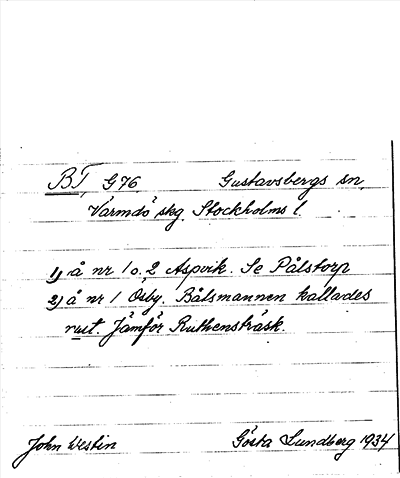 BT, G76. Gustavsbergs sn,
Värmdö skg. Stockholms l.
1) å nr 1 o. 2 Aspvik. Se Pålstorp
2) å nr 1 Ösby. Båtsmannen kallades
rust. Jämför Ruthensträsk.
John Westin Gösta Lundberg 1934